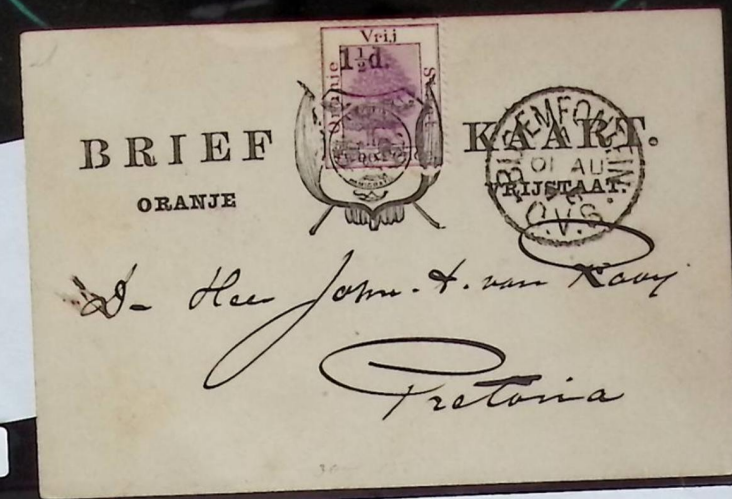 Vrij
1½d.
Oranje
BRIEF KAART.
ORANJE VRIJSTAAT.
BLOEMFONTEIN
10 AU
O.V.S.
De Heer John. A. van Rooy
Pretoria